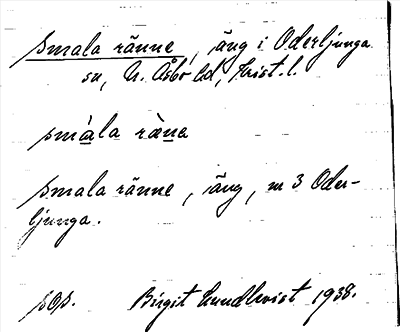 smala ränne, äng i Oderljunga
sn, N. Åsbo hd, Krist. l.
smàla ràne
smala ränne, äng, m 3 Oder-
ljunga.
pop. Birgit Lundkvist 1938.